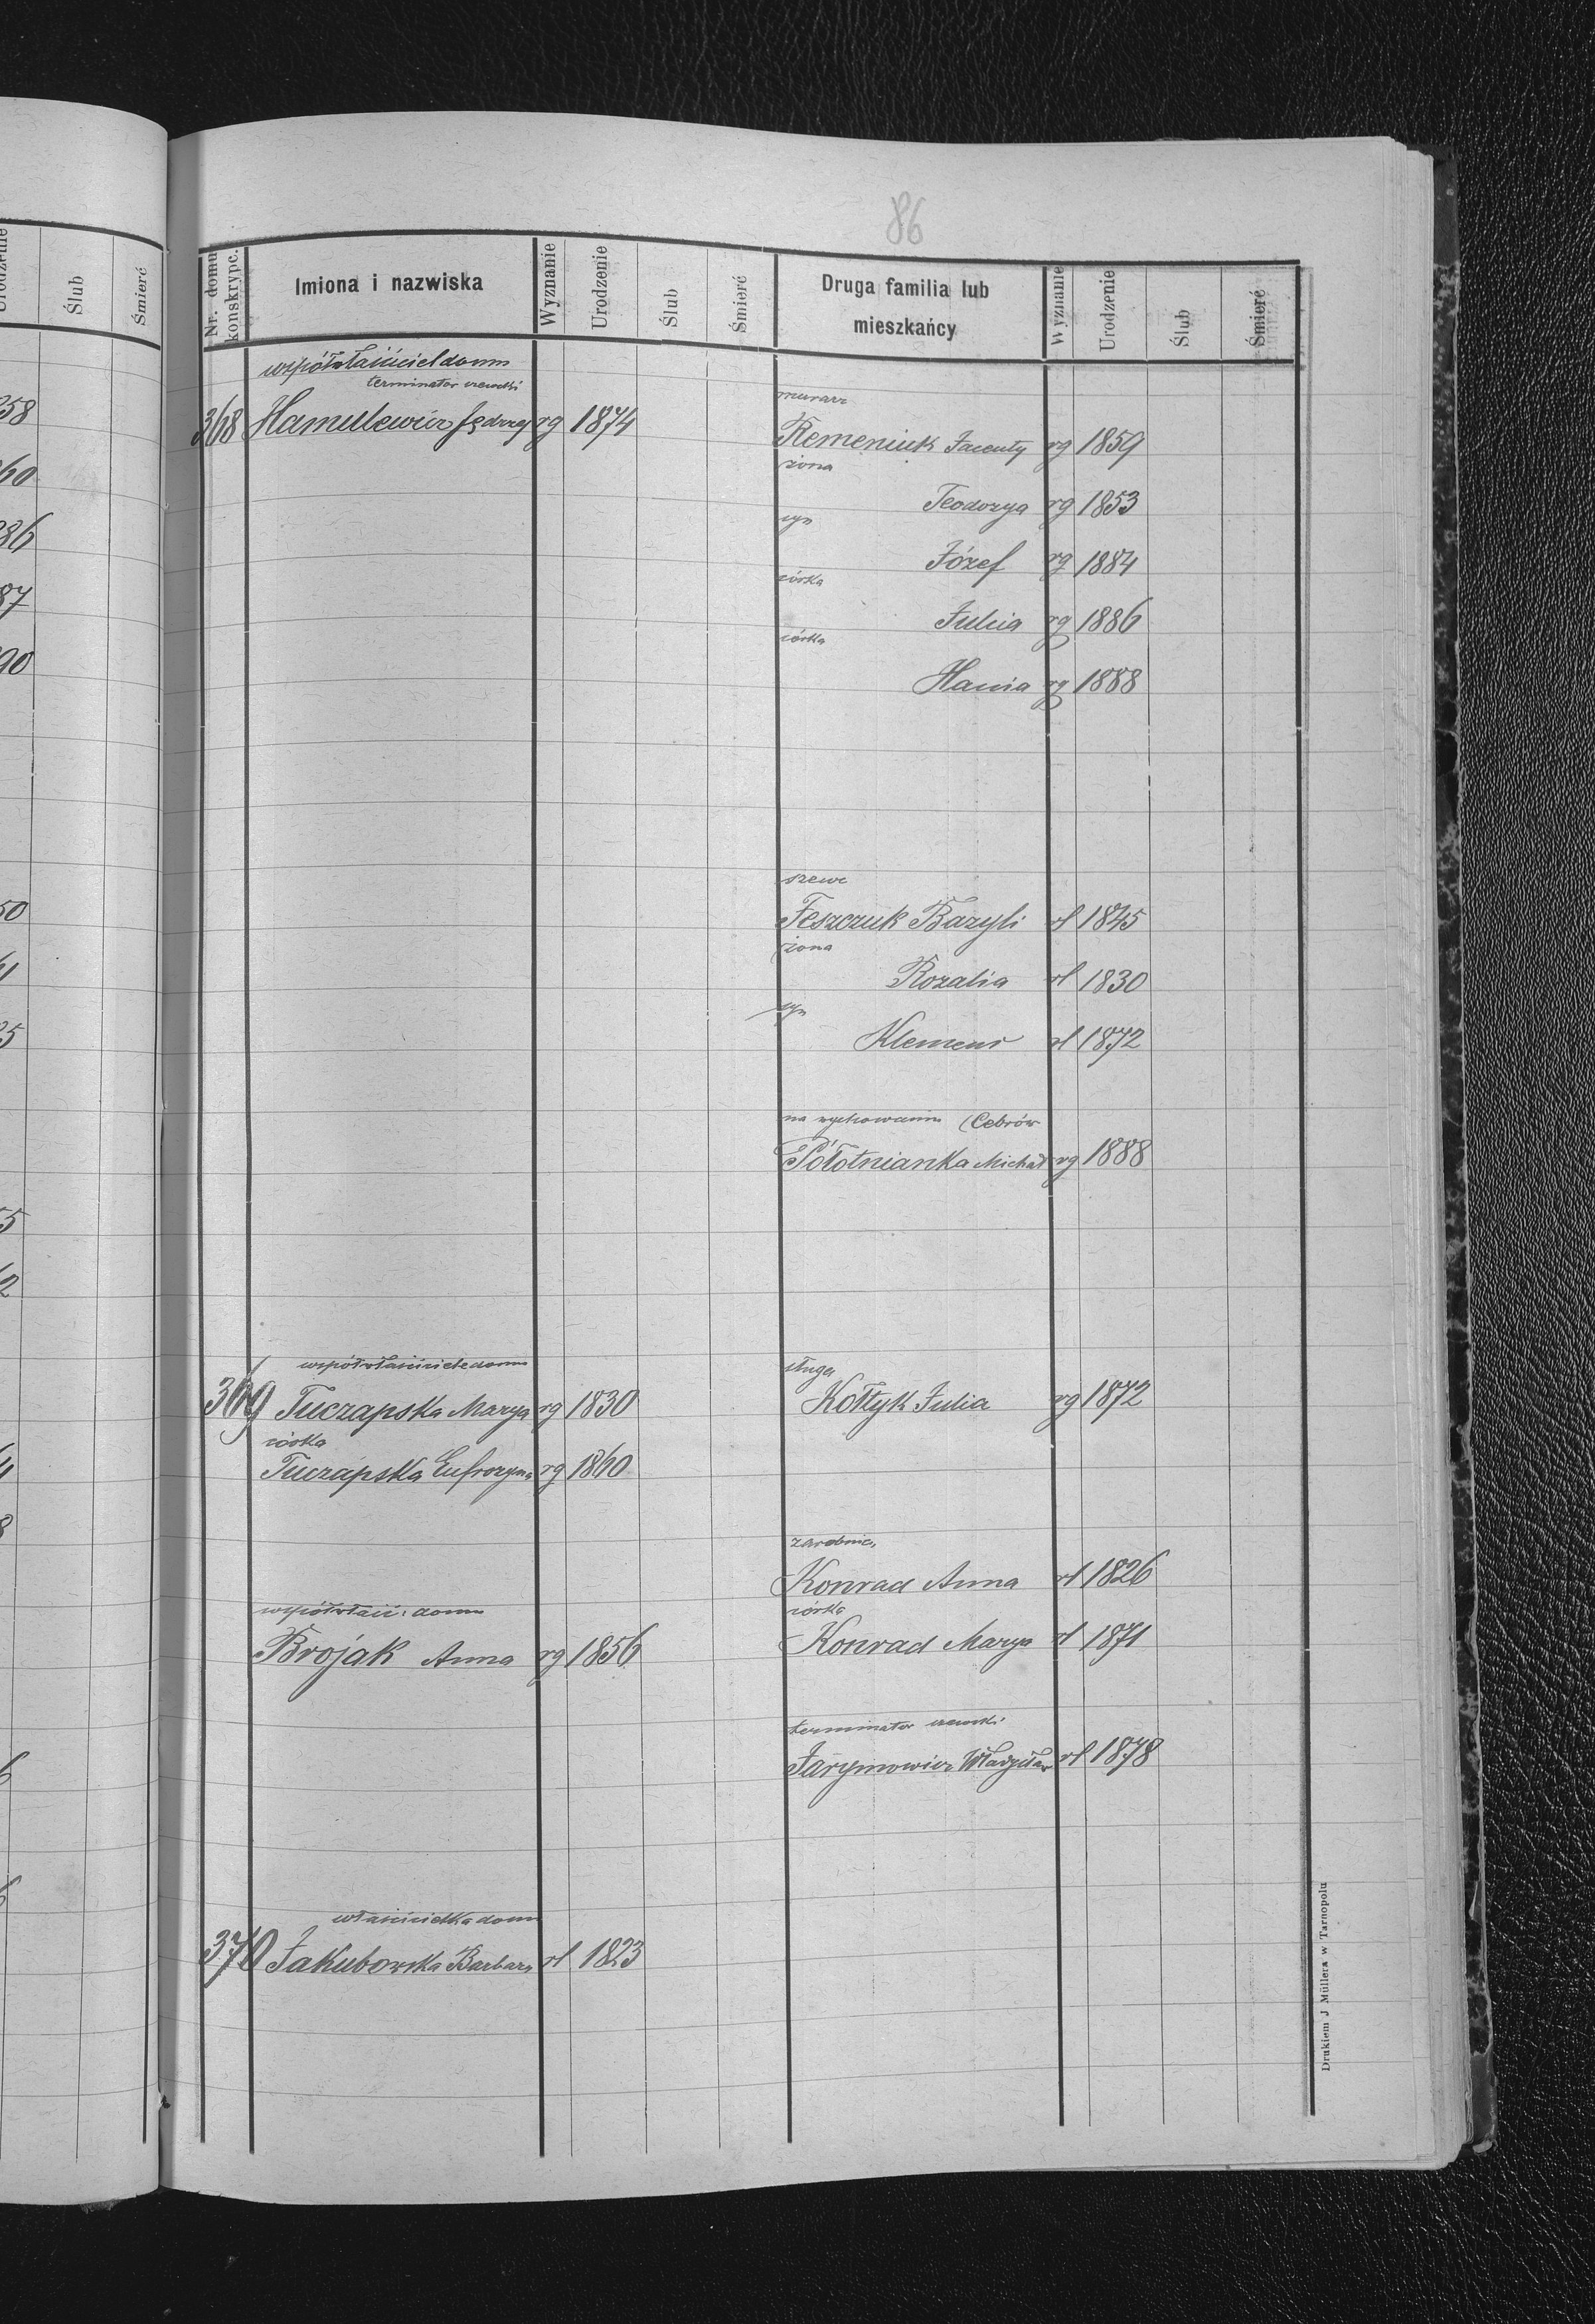 86
Nr. domu konskrypc. Imiona i nazwiska Wyznanie Urodzenie Ślub Śmierć Druga familia lub mieszkańcy Wyznanie Urodzenie Ślub Śmierć
współwłaściciel domu
terminator szewcki
368 Hamulewicz Jędrzej rg 1874
murarz
Remeniuk Jacenty rg 1859
żona
Teodozya rg 1853
syn
Józef rg 1884
córka
Julia rg 1886
córka
Hania rg 1888
szewc
Feszczuk Bazyli rł 1845
żona
Rozalia rł 1830
syn
Klemens rł 1872
na wychowaniu (Cebrów
Połotnianka Michał rg 1888
współwłaściciele domu
369 Tuczapska Marya rg 1830
córka
Tuczapska Eufrozyna rg 1860
sługa
Kołtyk Julia rg 1872
zarobnic,
Konrad Anna rł 1826
córka
Konrad Marya rł 1871
współwłaśc: domu
Brojak Anna rg 1856
terminator szewcki
Jarymowicz Władysław rł 1878
właścicielka domu
370 Jakubowska Barbara rł 1823
Drukiem J Müllera w Tarnopolu
Urodzenie Ślub Śmierć
58
60
86
87
90
50